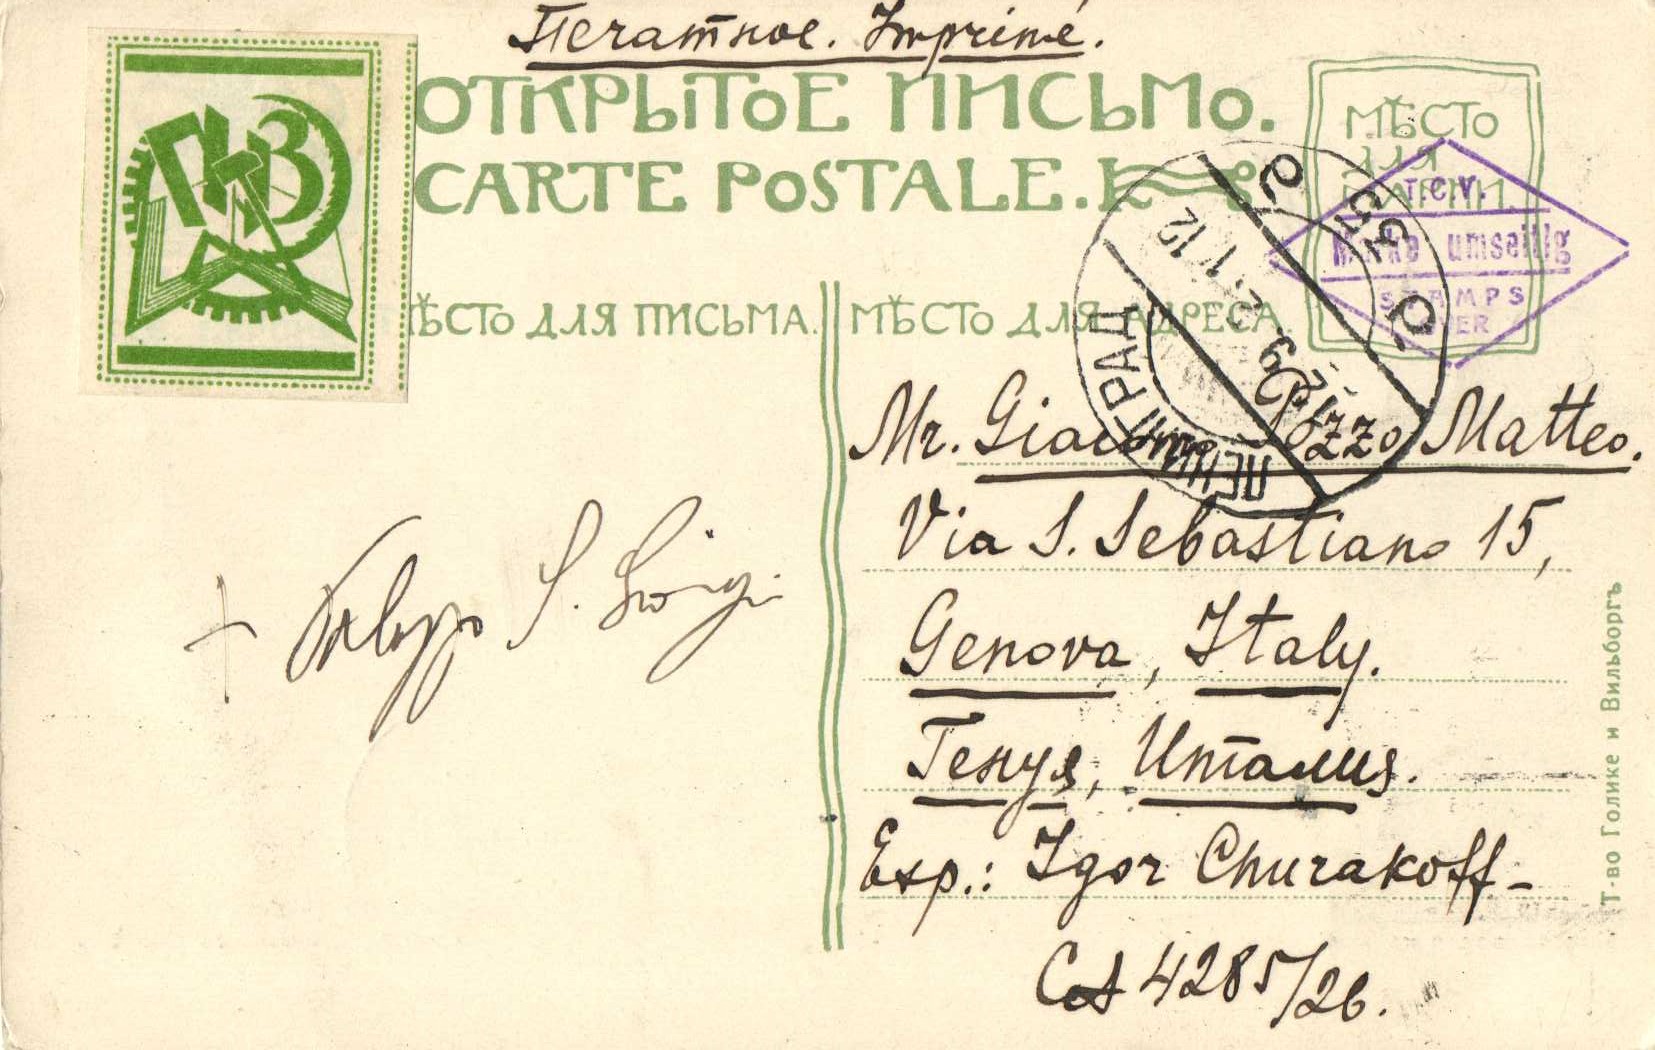 Печатное. Imprimé.
ОТКРЫТОЕ ПИСЬМО.
CARTE POSTALE.
МѢСТО
ДЛЯ
МАРКИ.
T.C.V.
Marke umseitig
STAMPS
OVER
ПКЗ
ѢСТО ДЛЯ ПИСЬМА.
МѢСТО ДЛЯ АДРЕСА.
ЛЕНИНГРАД
Mr. Giacomo Pozzo Matteo.
Via S. Sebastiano 15,
Genova, Italy.
Генуя, Италия.
Exp.: Igor Churakoff -
CA 4285/26.
Т-во Голике и Вильборгъ